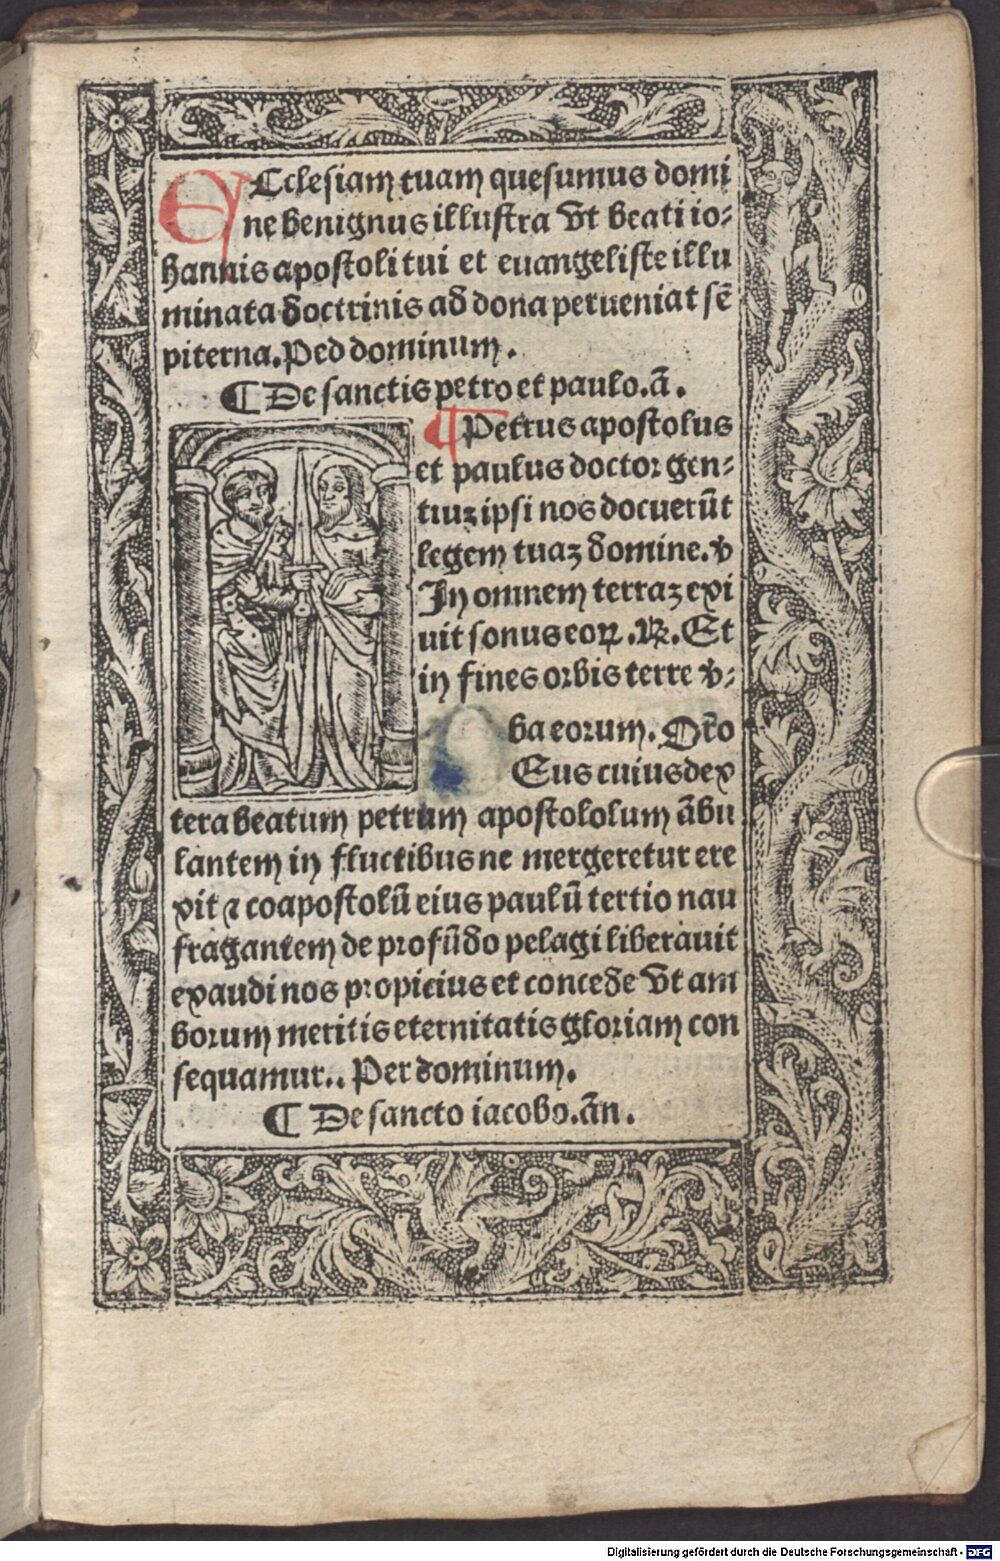 ECclesiam tuam quesumus domi
ne benignus illustra vt beati io⸗
hannis apostoli tui et euangeliste illu
minata doctrinis ad dona perueniat sē
piterna. Ped dominum.
¶ De sanctis petro et paulo. ā.
¶ Petrus apostolus
et paulus doctor gen⸗
tiuꝫ ipsi nos docuerūt
legem tuaꝫ domine. ℣
In omnem terraꝫ exi
uit sonus eoꝝ. ℟. Et
in fines orbis terre v̓⸗
ba eorum. Oro̅
Eus cuius dex
tera beatum petrum apostololum ābu
lantem in fluctibus ne mergeretur ere
xit ⁊ coapostolū eius paulū tertio nau
fragantem de profūdo pelagi liberauit
exaudi nos propicius et concede vt am
borum meritis eternitatis gloriam con
sequamur.. Per dominum.
¶ De sancto iacobo. ān.
Digitalisierung gefördert durch die Deutsche Forschungsgemeinschaft - DFG